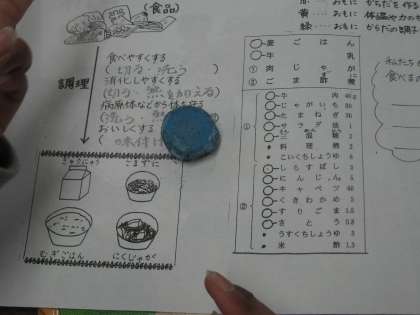 (食品)
食べやすくする
(切る・洗う
消化しやすくする
調理
(切る・熱を加える)
病原体などから体を守る
(洗う・
おいしくする
(味付け
ぎゅうにゅう
ごまずに
むぎごはん
にくじゃが
おもに からだを作る
黄…… おもに 体温や力の
緑…… おもに からだの調子
麦ごはん
牛乳
① 肉じゃが
② ごま酢
牛肉 40g
じゃがいも 80
たまねぎ 30
料理酒 2
こいくちしょうゆ 6
しらすぼし 3
にんじん 5
キャベツ 40
くきわかめ 3
すりごま 1.5
さとう 0.8
うすくちしょうゆ 3
米酢 1.5
①
②
私たちが
食べま